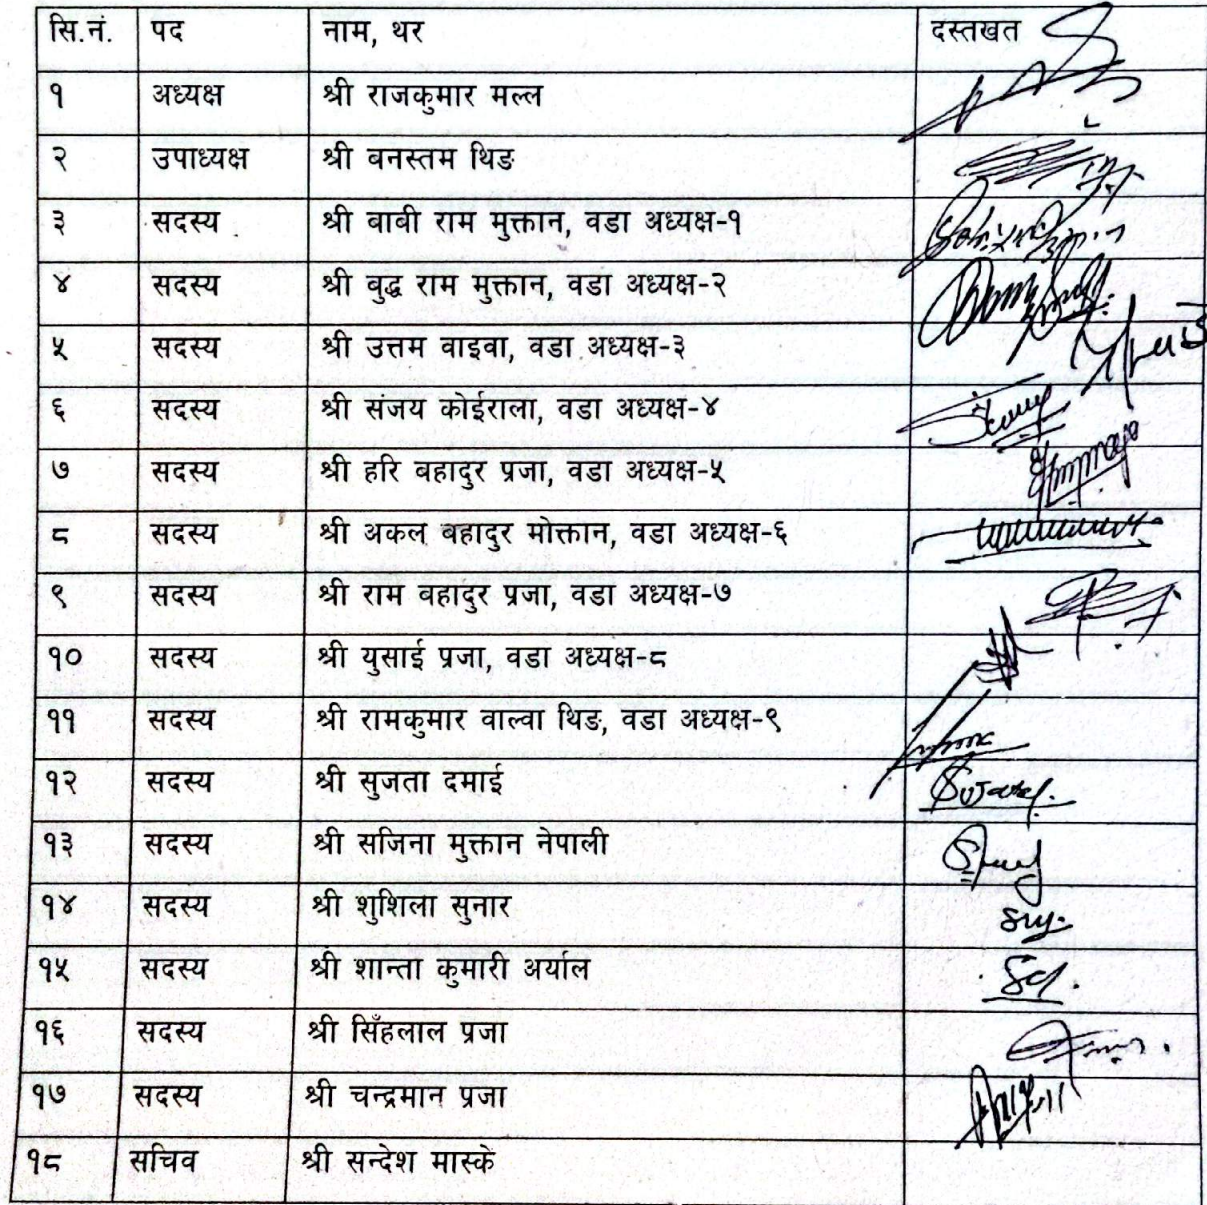 सि.नं. पद नाम, थर दस्तखत
१ अध्यक्ष श्री राजकुमार मल्ल
२ उपाध्यक्ष श्री बनस्तम थिङ
३ सदस्य श्री बाबी राम मुक्तान, वडा अध्यक्ष-१
४ सदस्य श्री बुद्ध राम मुक्तान, वडा अध्यक्ष-२
५ सदस्य श्री उत्तम वाइवा, वडा अध्यक्ष-३
६ सदस्य श्री संजय कोईराला, वडा अध्यक्ष-४
७ सदस्य श्री हरि बहादुर प्रजा, वडा अध्यक्ष-५
८ सदस्य श्री अकल बहादुर मोक्तान, वडा अध्यक्ष-६
९ सदस्य श्री राम बहादुर प्रजा, वडा अध्यक्ष-७
१० सदस्य श्री युसाई प्रजा, वडा अध्यक्ष-८
११ सदस्य श्री रामकुमार वाल्वा थिङ, वडा अध्यक्ष-९
१२ सदस्य श्री सुजता दमाई
१३ सदस्य श्री सजिना मुक्तान नेपाली
१४ सदस्य श्री शुशिला सुनार
१५ सदस्य श्री शान्ता कुमारी अर्याल
१६ सदस्य श्री सिँहलाल प्रजा
१७ सदस्य श्री चन्द्रमान प्रजा
१८ सचिव श्री सन्देश मास्के